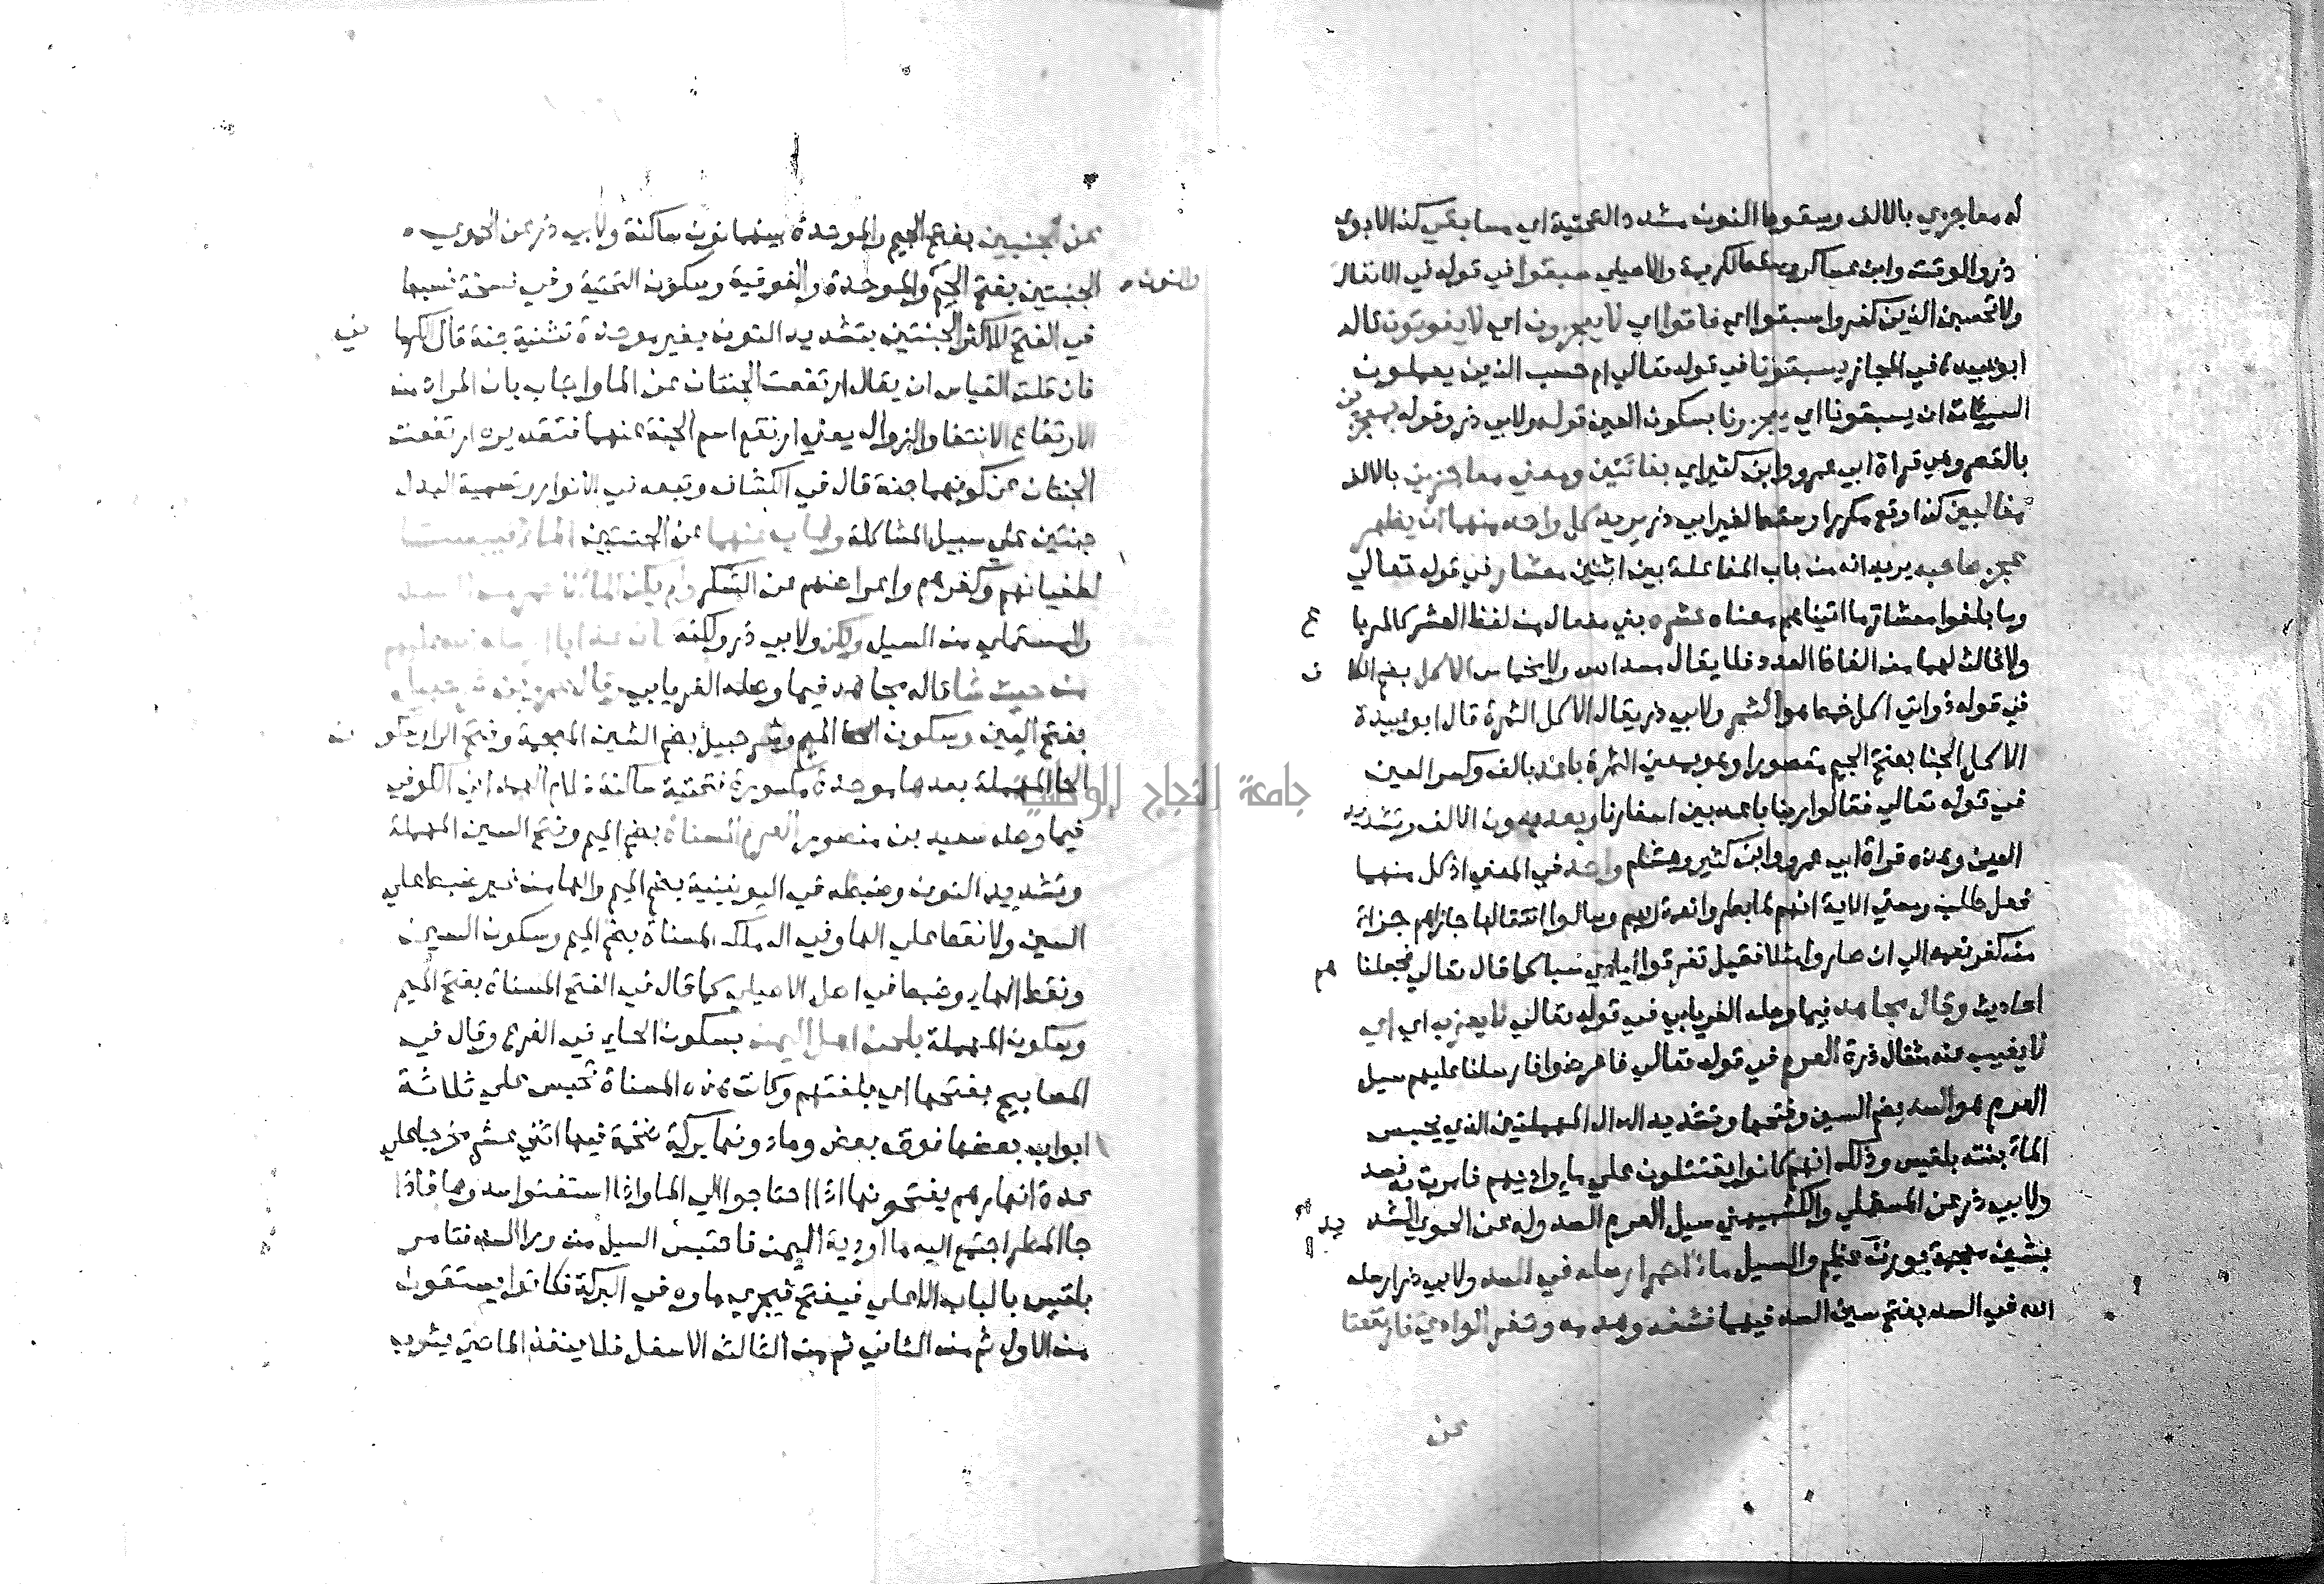 له معاجزي بالالف وسقوط النون مشدد التحتية اي مسابقي كذا لابوي
ذر والوقت وابن عساكر وسقط لكريمة والاصيلي سبقوا في قوله في الانفال
ولا تحسبن الذين كفروا سبقوا اي فاتوا اي لا يعجزون اي لا يفوتون قاله
ابو عبيدة في المجاز يسبقونا في قوله تعالي ام حسب الذين يعملون
السيئات ان يسبقونا اي يعجزونا بسكون العين قوله ولابي ذر وقوله بمعجزين
بالقصر وهي قراة ابي عمرو وابن كثير اي بفائتين ومعني معاجزين بالالف
مغالبين كذا وقع مكررا وسقط لغير ابي ذر يريد كل واحد منهما ان يظهر
عجز صاحبه يريد انه من باب المفاعلة بين اثنين معشار في قوله تعالي
وما بلغوا معشار ما اتيناهم معناه عشر بني مفعال من لفظ العشر كالمربا ع
ولا ثالث لهما من الفاظ العدد فلا يقال مسداس ولا مخماس الاكل بضم الكا ف
في قوله ذواتي اكل خمط هو الثمر ولابي ذر يقال الاكل الثمرة قال ابو عبيدة
الاكل الجنا بفتح الجيم مقصورا وهو بمعني الثمرة باعد بالف وكسر العين
في قوله تعالي فقالوا ربنا باعد بين اسفارنا وبعد بدون الالف وتشديد
العين وهذه قراة ابي عمرو وابن كثير وهشام واحد في المعني اذ كل منهما
فعل طلب ومعني الاية انهم لما بطروا نعمة ربهم وسالوا انتقالها جازاهم جزاء
من كفر نعمه الي ان صاروا مثلا فقيل تفرقوا ايادي سبا كما قال تعالي فجعلنا هم
احاديث وقال مجاهد فيما وصله الفريابي في قوله تعالي لا يعزب اي
لا يغيب عنه مثقال ذرة العرم في قوله تعالي فاعرضوا فارسلنا عليهم سيل
العرم هو السد بضم السين وفتحها وتشديد الدال المهملتين الذي يحبس
الماء بنته بلقيس وذلك انهم كانوا يقتتلون علي ماء واديهم فامرت به فسد
ولابي ذر عن المستملي والكشميهني سيل العرم السد وله عن الحموي الشد يد
بشين معجمة بوزن عظيم والسيل ماء احمر ارسله في السد ولابي ذر ارسله
الله في السد بفتح سين السد فيهما فشقه وهدمه وحفر الوادي فارتفعتا
عن
عن الجنبين بفتح الجيم والموحدة بينهما نون ساكنة ولابي ذر عن الحموي
الجنبتين بفتح الجيم والموحدة والفوقية وسكون التحتية وفي نسخة نسبها
والنون
في الفتح للاكثر الجنتين بتشديد النون بغير موحدة تثنية جنة قال الكرما ني
فان قلت القياس ان يقال ارتفعت الجنتان عن الماء واجاب بان المراد من
الارتفاع الانتفا والزوال يعني ارتفع اسم الجنة عنهما فتقديره ارتفعت
الجنتان عن كونهما جنة قال في الكشاف وتبعه في الانوار وتسمية البدل
جنتين علي سبيل المشاكلة وغاب عنهما عن الجنتين الماء فيبستا
لطغيانهم وكفرهم واعراضهم عن الشكر ولم يكن الماء الاحمر من السد
وللمستملي من السيل ولكن ولابي ذر ولكنه كان عذابا ارسله الله عليهم
من حيث شا قاله مجاهد فيما وصله الفريابي وقال عمرو بن شرحبيل
بفتح العين وسكون الميم وشرحبيل بضم الشين المعجمة وفتح الرا وسكو ن
الحا المهملة بعدها موحدة مكسورة فتحتية ساكنة فلام الهمداني الكوفي
فيما وصله سعيد بن منصور العرم المسناة بضم الميم وفتح السين المهملة
وتشديد النون وضبطه في اليونينية بضم الميم والها من غير ضبط علي
السين ولا نقط علي الها وفي ال ملك المسناة بضم الميم وسكون السين
ونقط الهاء وضبط في اصل الاصيلي كما قال في الفتح المسناة بفتح الميم
وسكون المهملة بلحن اهل اليمن بسكون الحاء في الفرع وقال في
المصابيح بفتحها اي بلغتهم وكانت هذه المسناة تحبس علي ثلاثة
ابواب بعضها فوق بعض ومن دونها بركة ضخمة فيها اثني عشر مخرجا علي
عدة انهارهم يفتحونها اذا احتاجوا الي الما واذا استغنوا سدوها فاذا
جا المطر اجتمع اليه ما اودية اليمن فاحتبس السيل من ورا السد فتامر
بلقيس بالباب الاعلي فيفتح فيجري ماوه في البركة فكانوا يستقون
من الاول ثم من الثاني ثم من الثالث الاسفل فلا ينفد الما حتي يثوب
جامعة النجاح الوطنية